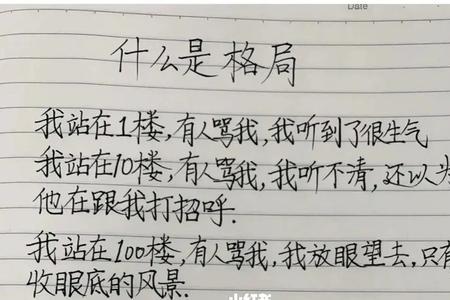 Date
什么是格局
我站在1楼,有人骂我,我听到了很生气
我站在10楼,有人骂我,我听不清,还以为
他在跟我打招呼.
我站在100楼,有人骂我,我放眼望去,只有
收眼底的风景.
小红书